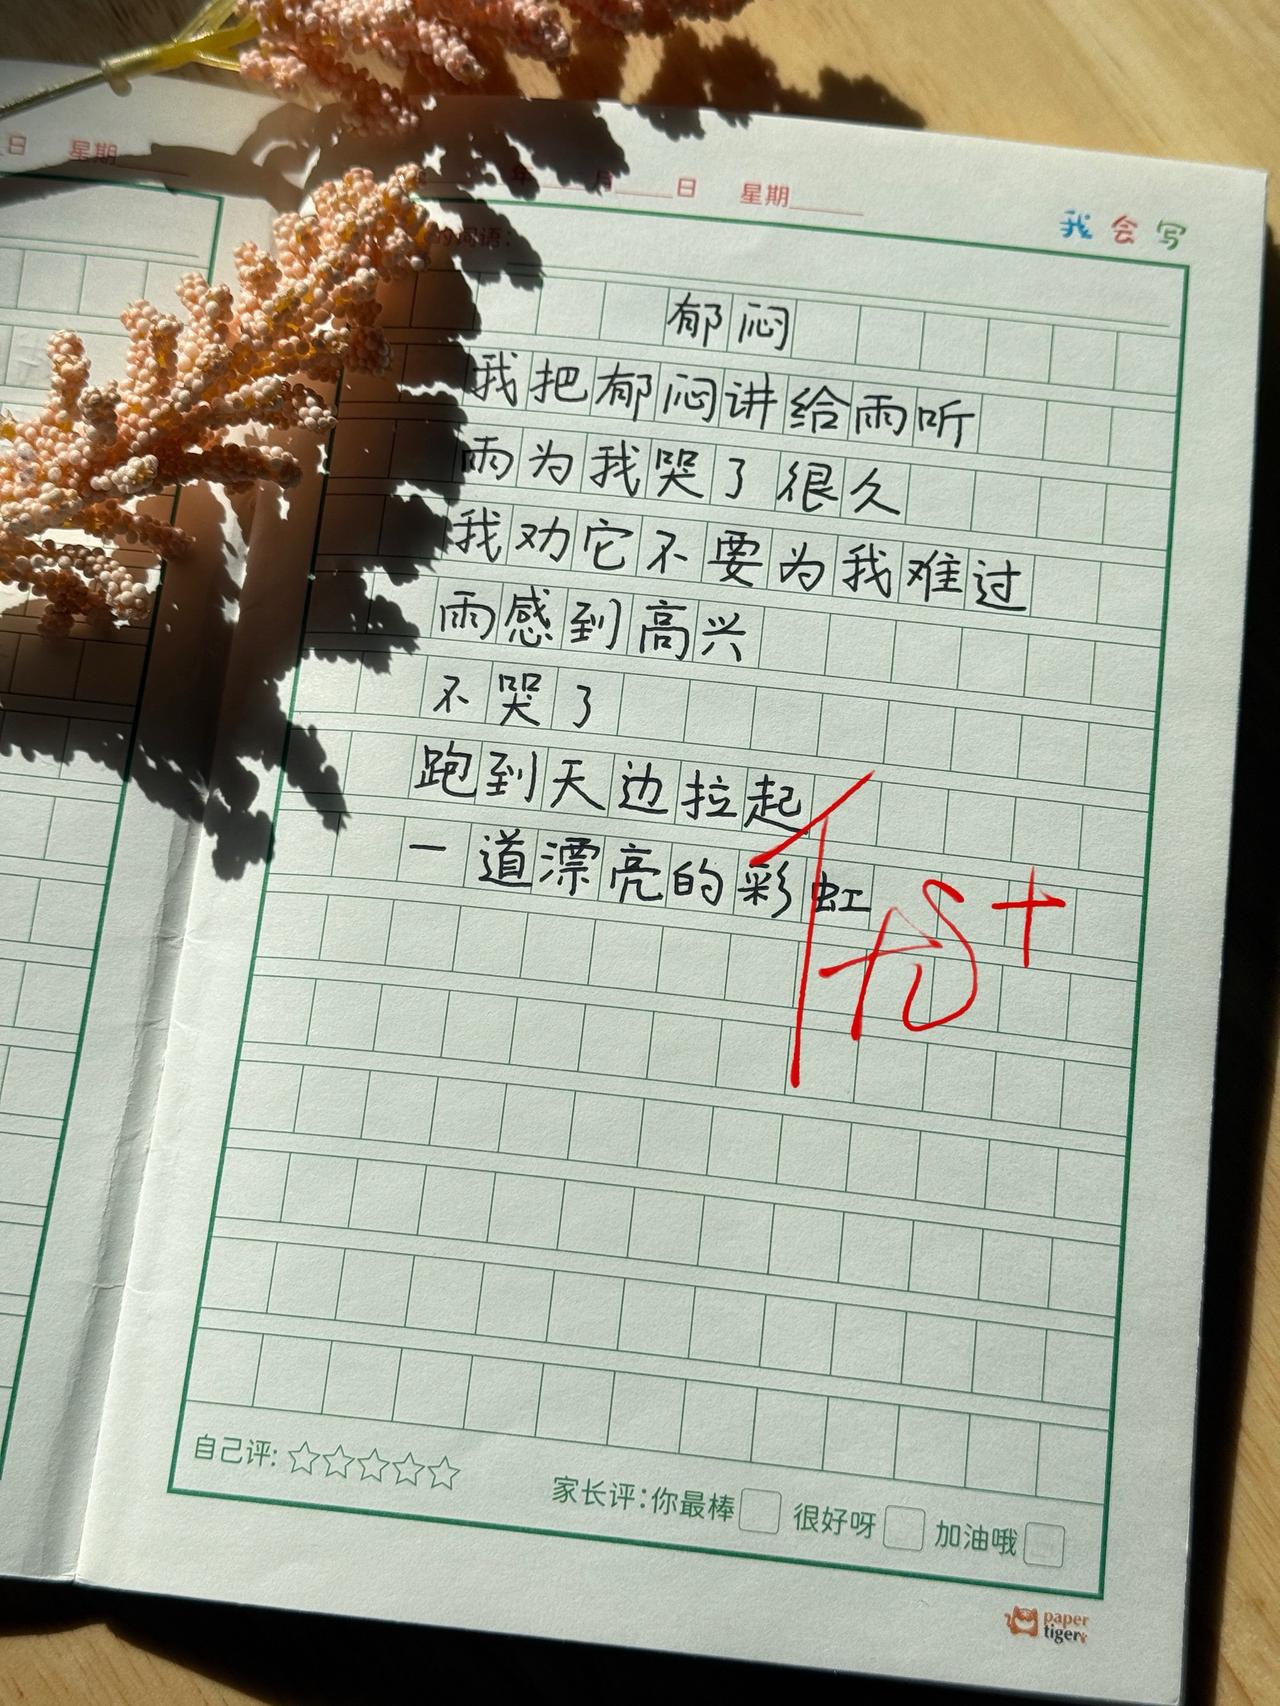 日 星期
年 月 日 星期
我会写
的词语:
郁闷
我把郁闷讲给雨听
雨为我哭了很久
我劝它不要为我难过
雨感到高兴
不哭了
跑到天边拉起
一道漂亮的彩虹
优+
自己评:☆☆☆☆☆
家长评:你最棒 很好呀 加油哦
paper
tiger